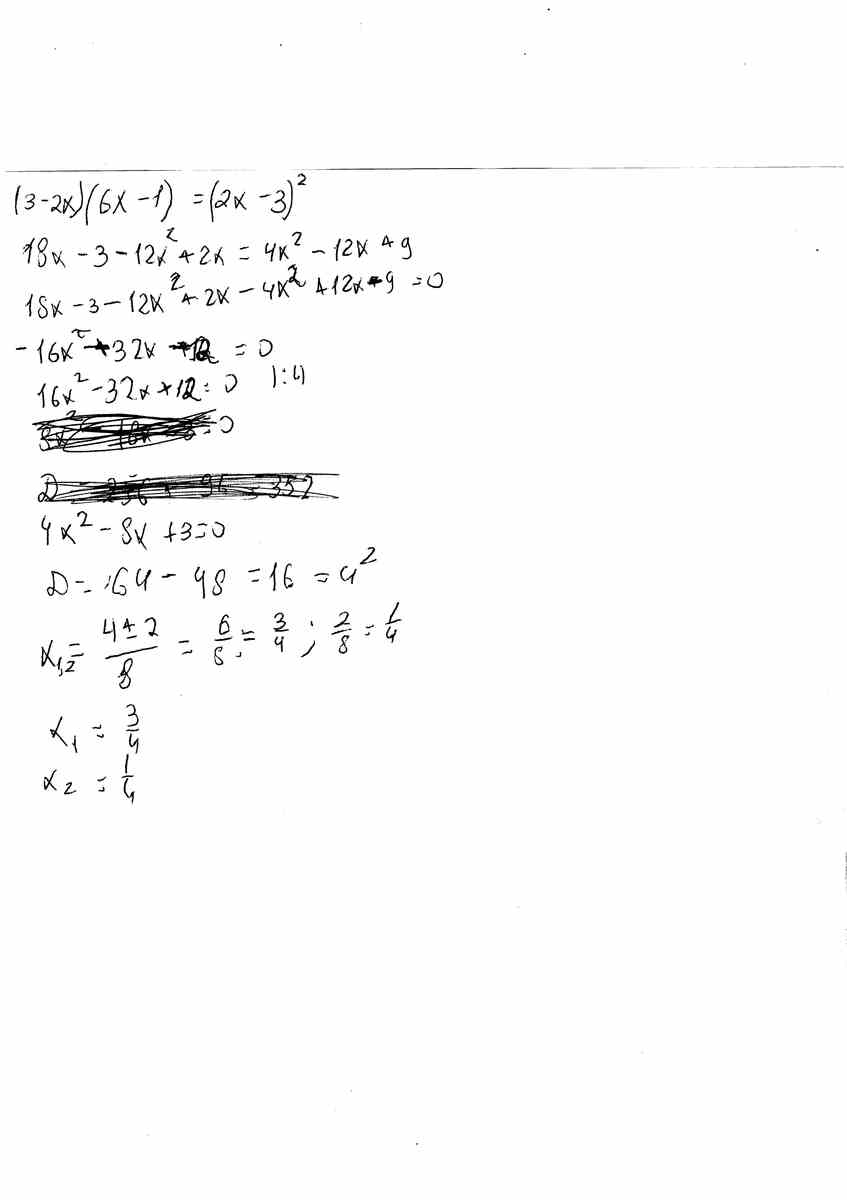 (3-2x)(6x-1) = (2x-3)²
18x - 3 - 12x² + 2x = 4x² - 12x + 9
18x - 3 - 12x² + 2x - 4x² + 12x - 9 = 0
-16x² + 32x - 12 = 0
16x² - 32x + 12 = 0 |:4
= 0
4x² - 8x + 3 = 0
D = 64 - 48 = 16 = 4²
x₁,₂ = (4 ± 2)/8 = 6/8 = 3/4 ; 2/8 = 1/4
x₁ = 3/4
x₂ = 1/4